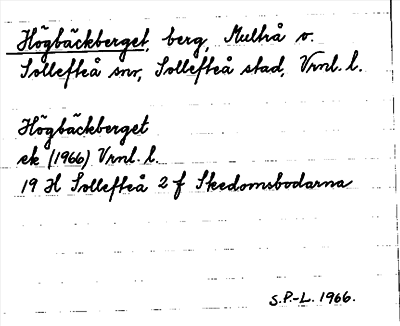 Högbäckberget, berg, Multrå v.
Sollefteå snv, Sollefteå stad, Vrnl. l.
Högbäckberget
ek (1966) Vrnl. l.
19 H Sollefteå 2 f Skedomsbodarna
S.P.-L. 1966.